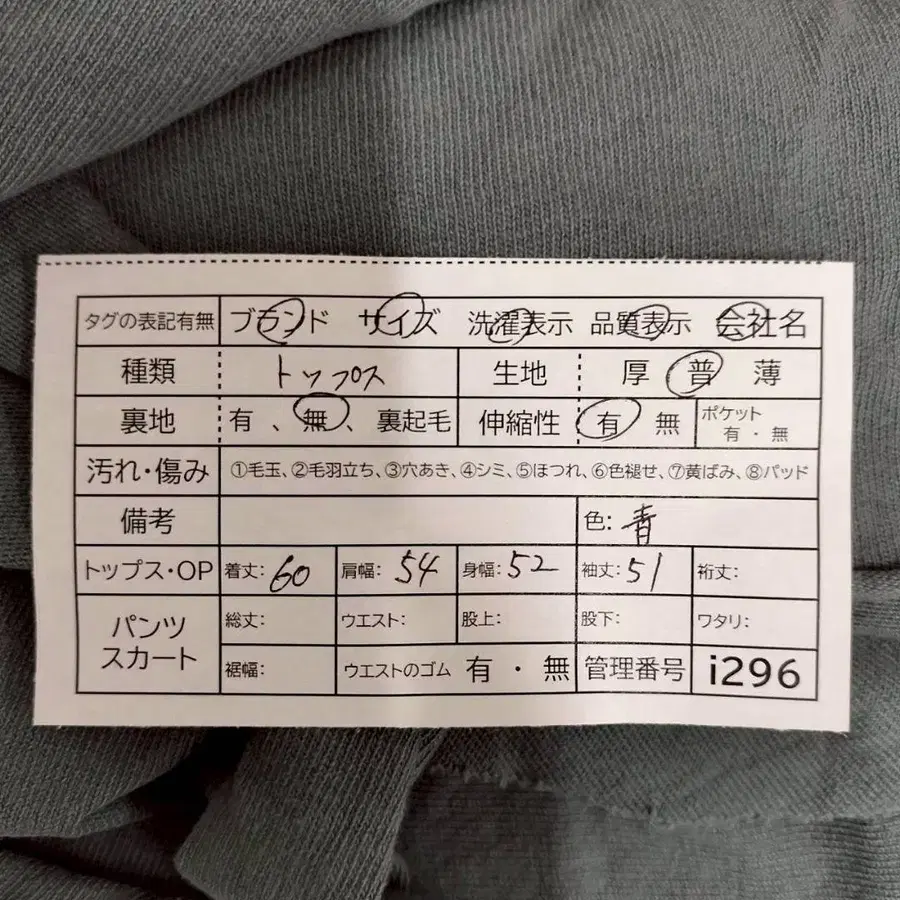 タグの表記有無 ブランド サイズ 洗濯表示 品質表示 会社名
種類 トップス 生地 厚 普 薄
裏地 有 、無、裏起毛 伸縮性 有 無 ポケット 有・無
汚れ・傷み ①毛玉、②毛羽立ち、③穴あき、④シミ、⑤ほつれ、⑥色褪せ、⑦黄ばみ、⑧パッド
備考 色: 青
トップス・OP 着丈: 60 肩幅: 54 身幅: 52 袖丈: 51 裄丈:
パンツ スカート 総丈: ウエスト: 股上: 股下: ワタリ:
裾幅: ウエストのゴム 有・無 管理番号 i296